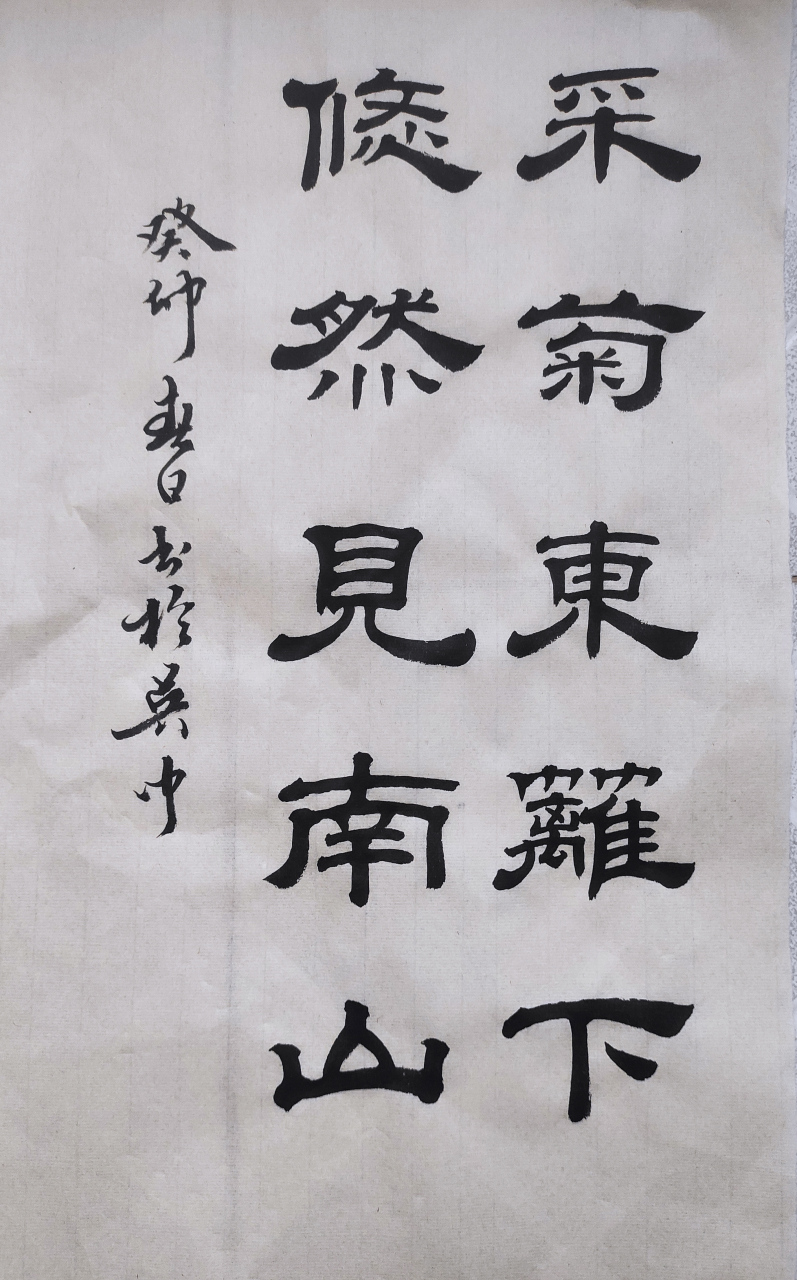 采菊東籬下
悠然見南山
癸卯春日書於吴中